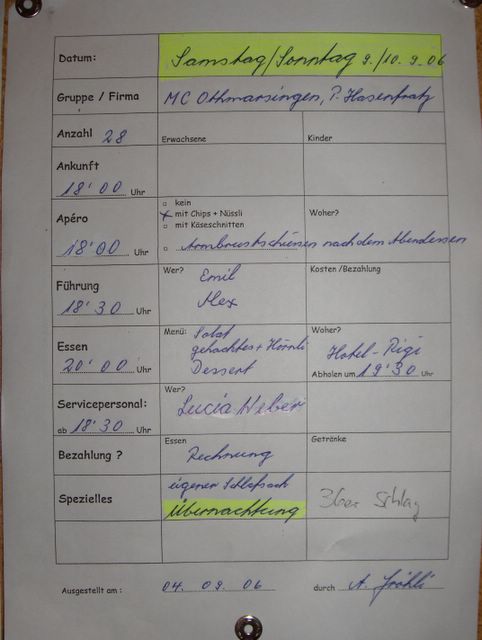 Datum: Samstag/Sonntag 9./10.9.06
Gruppe / Firma MC Othmarsingen, P. Hasenfratz
Anzahl 28 Erwachsene Kinder
Ankunft
18'00 Uhr
kein
Apéro x mit Chips + Nüssli Woher?
mit Käseschnitten
18'00 Uhr Armbrustschiessen nach dem Abendessen
Wer? Emil Kosten /Bezahlung
Führung Alex
18'30 Uhr
Menü: Salat Woher?
Essen gehacktes + Hörnli Hotel-Rigi
20'00 Uhr Dessert Abholen um 19'30 Uhr
Wer?
Servicepersonal: Lucia Weber
ab 18'30 Uhr
Essen Getränke
Bezahlung ? Rechnung
eigener Schlafsack
Spezielles Übernachtung 3er Schlag
Ausgestellt am : 04. 09. 06 durch A. Fröhli